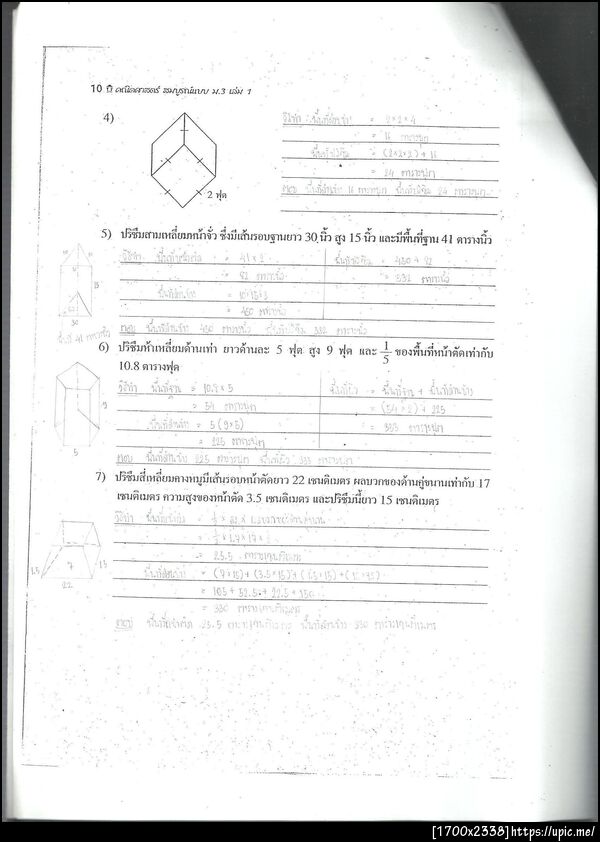 10 ปี คณิตศาสตร์ สมบูรณ์แบบ ม.3 เล่ม 1
4)
2 ฟุต
วิธีทำ พื้นที่ผิวข้าง = 2×2×4
= 16 ตารางฟุต
พื้นที่ผิว = (2×2×2) + 16
= 24 ตารางฟุต
ตอบ พื้นที่ผิวข้าง 16 ตารางฟุต พื้นที่ผิว 24 ตารางฟุต
5) ปริซึมสามเหลี่ยมหน้าจั่ว ซึ่งมีเส้นรอบฐานยาว 30 นิ้ว สูง 15 นิ้ว และมีพื้นที่ฐาน 41 ตารางนิ้ว
วิธีทำ = 41 × 2
= 82 ตารางนิ้ว
พื้นที่ผิวข้าง
= 450 ตารางนิ้ว
= 450 + 82
= 532 ตารางนิ้ว
15
30
พื้นที่ 41 ตารางนิ้ว
6) ปริซึมห้าเหลี่ยมด้านเท่า ยาวด้านละ 5 ฟุต สูง 9 ฟุต และ 1/5 ของพื้นที่หน้าตัดเท่ากับ
10.8 ตารางฟุต
วิธีทำ พื้นที่ฐาน = 10.8 × 5
= 54 ตารางฟุต
พื้นที่ผิวข้าง = 5 (9×5)
= 225 ตารางฟุต
พื้นที่ผิว = พื้นที่ฐาน + พื้นที่ผิวข้าง
= (54 × 2) + 225
= 333 ตารางฟุต
ตอบ พื้นที่ผิวข้าง 225 ตารางฟุต พื้นที่ผิว 333 ตารางฟุต
9
5
7) ปริซึมสี่เหลี่ยมคางหมูมีเส้นรอบหน้าตัดยาว 22 เซนติเมตร ผลบวกของด้านคู่ขนานเท่ากับ 17
เซนติเมตร ความสูงของหน้าตัด 3.5 เซนติเมตร และปริซึมนี้ยาว 15 เซนติเมตร
วิธีทำ
= 25.5 ตารางเซนติเมตร
พื้นที่ผิวข้าง = (7×15) + (3.5×15) + (1.5×15) +
= 105 + 52.5 + 22.5 + 150
= 330 ตารางเซนติเมตร
ตอบ 25.5 ตารางเซนติเมตร พื้นที่ผิวข้าง 330 ตารางเซนติเมตร
7
15
22
[1700x2338]https://upic.me/